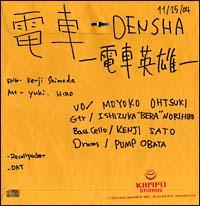 11/25/04
電車 - DENSHA
-電車英雄-
Eng- Kenji Shimoda
Ast - yuki. Hiro
VO/ MOYOKO OHTSUKI
Gtr / ISHIZUKA "BERA" NORIHIRO
Bass.Cello/ KENJI SATO
Drums / PUMP OBATA
-DAT
KAMPO
STUDIOS